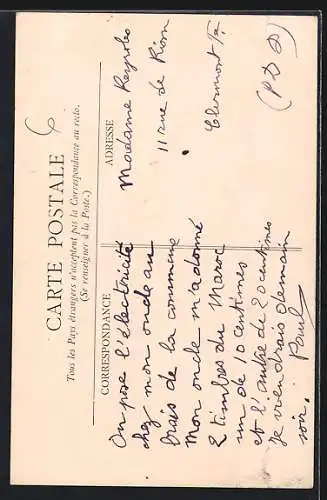 CARTE POSTALE
Tous les Pays étrangers n'acceptent pas la Correspondance au recto.
(Se renseigner à la Poste.)
CORRESPONDANCE
ADRESSE
On pose l'électricité
chez mon oncle au
frais de la commune
Mon oncle m'a donné
2 timbres du Maroc
un de 10 centimes
et l'autre de 20 centimes
Je viendrais demain
soir. Paul
Madame
11 rue de Riom
Clermont Fd
(P D D)